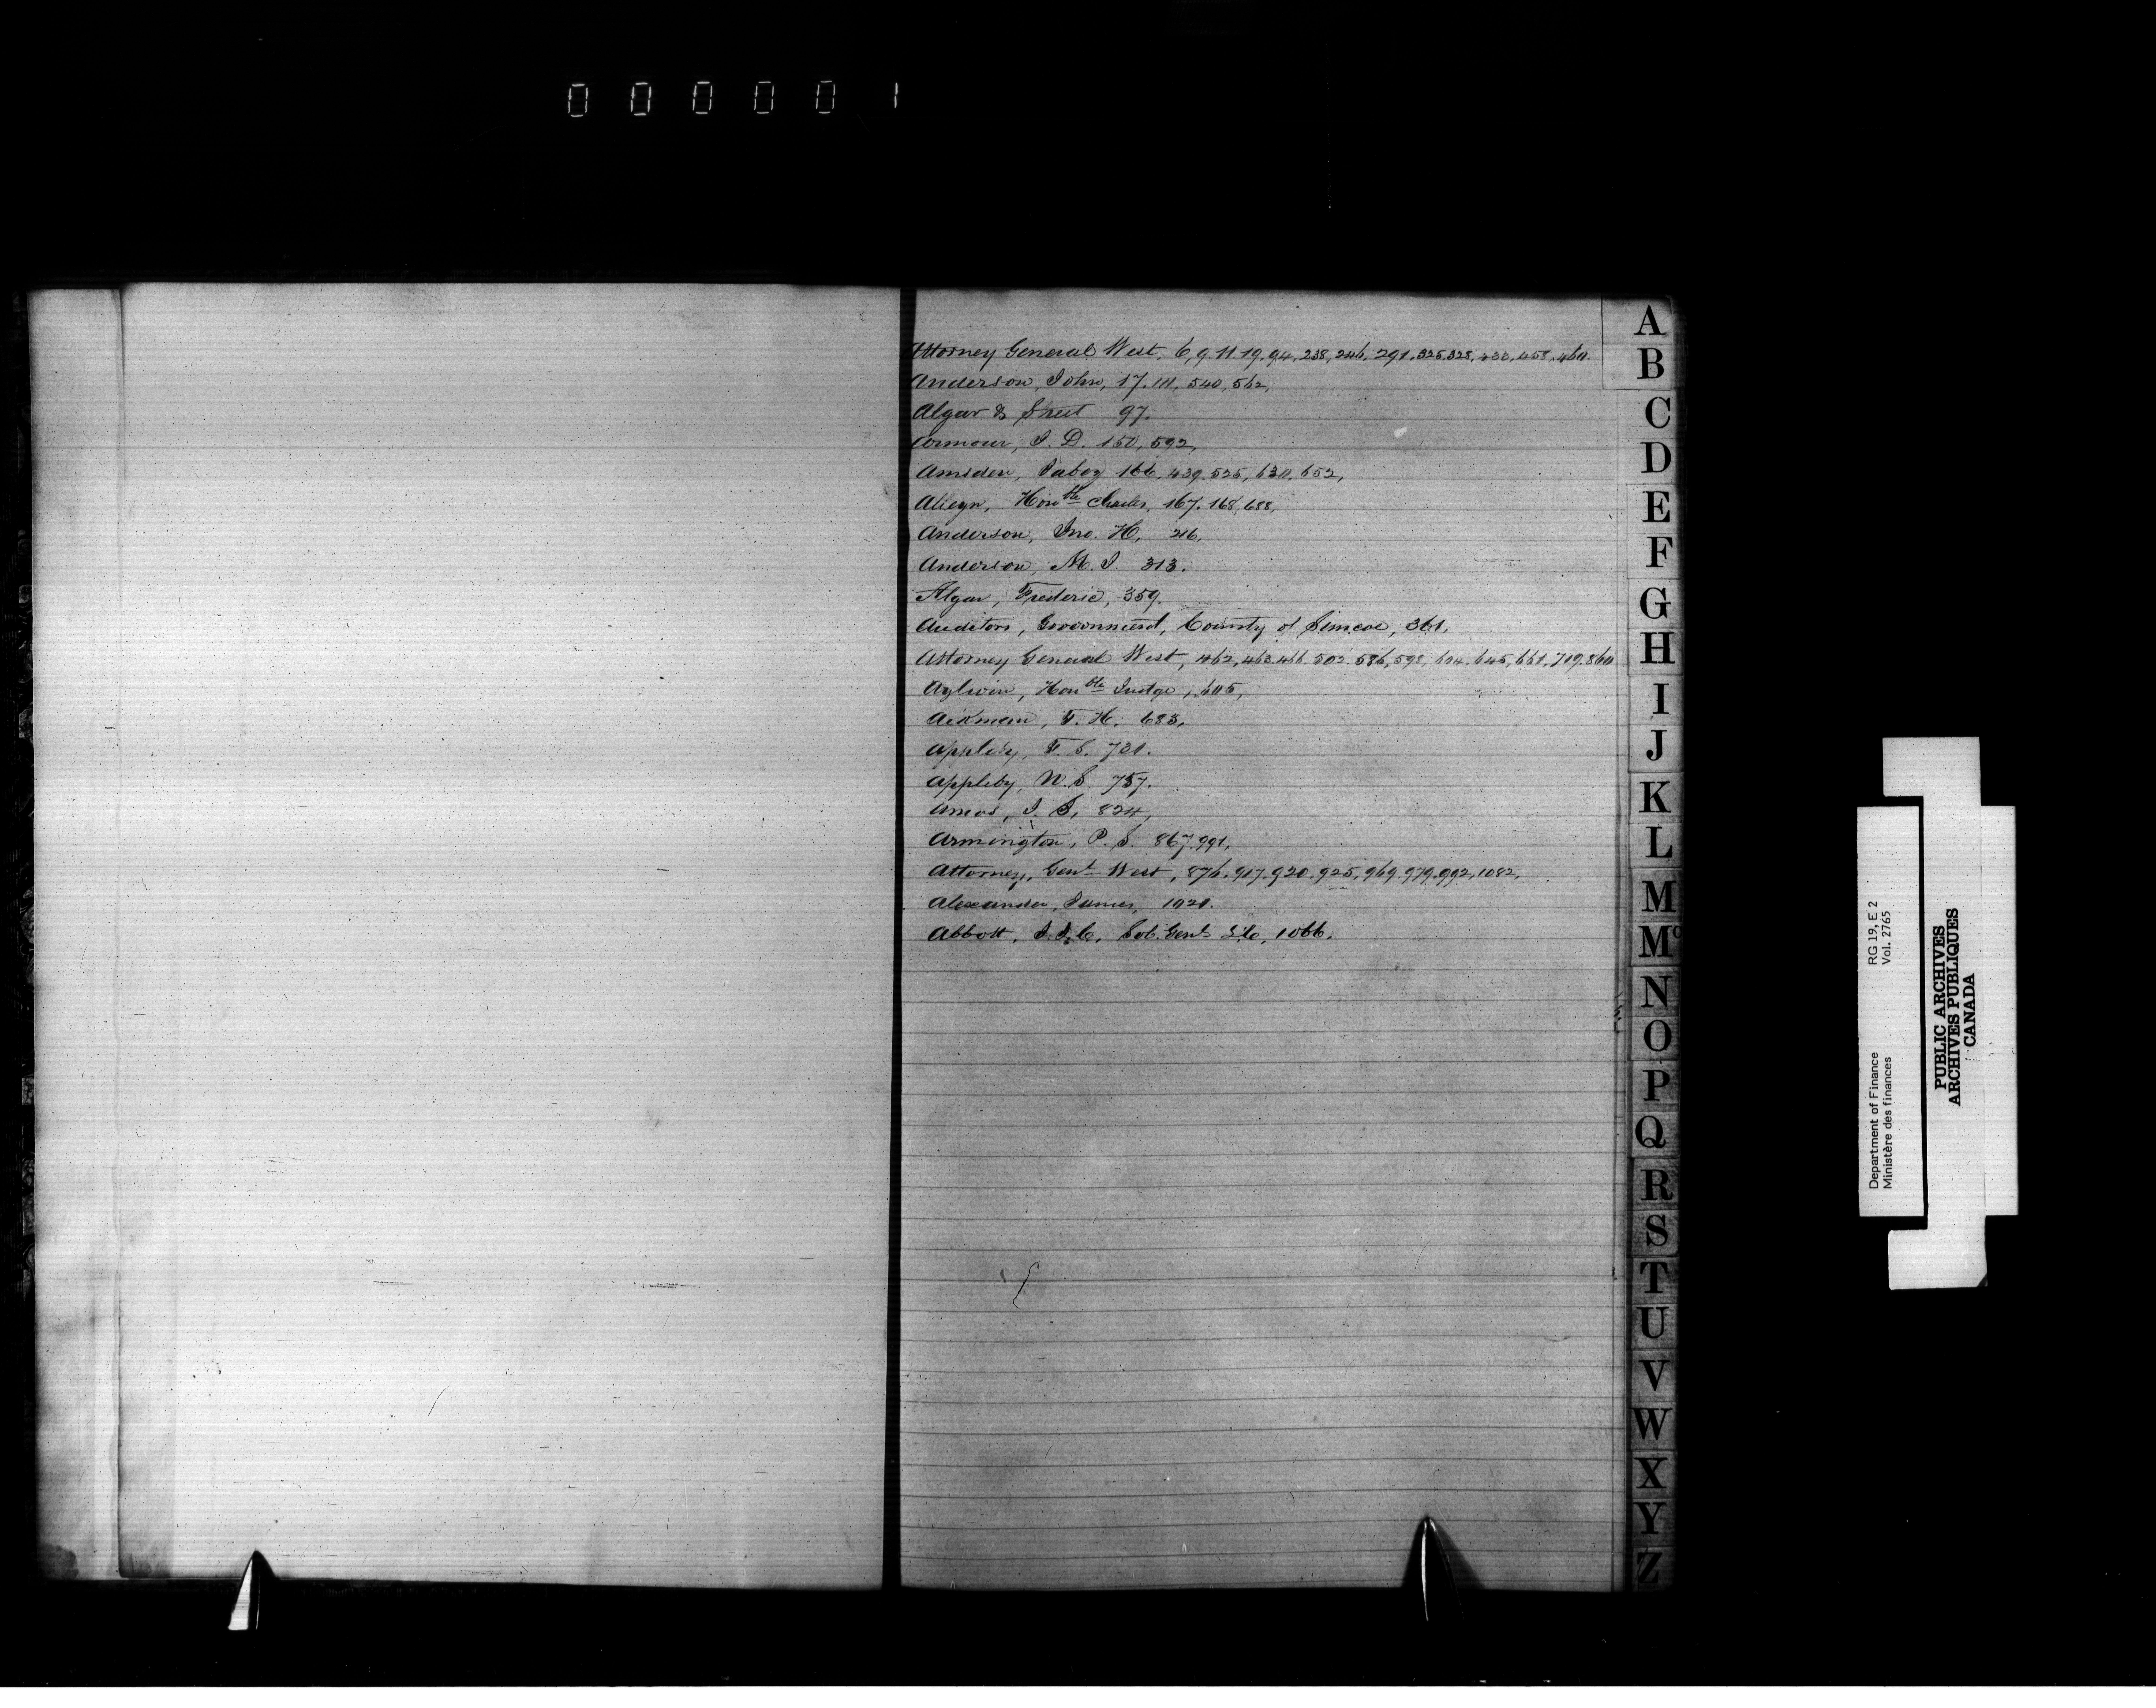 000001
Attorney General West, 6, 9. 11. 19. 94. 238, 246, 291. 325. 328, 433, 458, 460.
Anderson, John, 17. 111, 540, 562,
Algar & Street 97.
Armour, J. D. 150, 592,
Amsden, Jabez 166. 439. 525, 630, 652,
Alleyn, Honble Charles, 167. 168, 688,
Anderson, Jno. H, 216,
Anderson, M. J. 313.
Algar, Frederic, 359.
Auditors, Government, County of Simcoe, 361.
Attorney General West, 462, 463. 466. 502. 586, 598, 604. 645, 661, 719. 860
Aylwin, Honble Judge, 605,
Aikman, F. H. 683,
Appleby, T. S. 731.
Appleby, W. S. 757.
Ameos, J. S, 824,
Armington, P. S. 867. 991,
Attorney, Genl West, 876. 917. 920. 925, 969. 979. 992, 1082,
Alexander, James, 1021.
Abbott, J. J. C, Sol. Genl L.C, 1066.
A
B
C
D
E
F
G
H
I
J
K
L
M
Mc
N
O
P
Q
R
S
T
U
V
W
X
Y
Z
Department of Finance RG 19, E 2
Ministère des finances Vol. 2765
PUBLIC ARCHIVES
ARCHIVES PUBLIQUES
CANADA